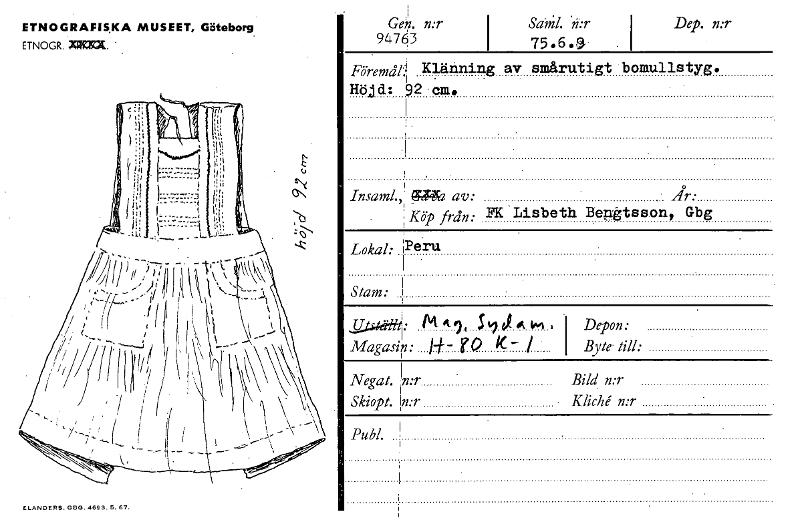 ETNOGRAFISKA MUSEET, Göteborg
ETNOGR.
höjd 92 cm
ELANDERS. GBG. 4693. 5. 67.
Gen. n:r Saml. n:r Dep. n:r
94763 75.6.9
Föremål: Klänning av smårutigt bomullstyg.
Höjd: 92 cm.
Insaml., av: År:
Köp från: FK Lisbeth Bengtsson, Gbg
Lokal: Peru
Stam:
Utställt: Mag. Sydam. Depon:
Magasin: H-80 K-1 Byte till:
Negat. n:r Bild n:r
Skiopt. n:r Kliché n:r
Publ.